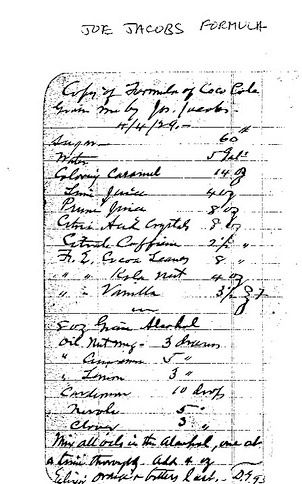 JOE JACOBS FORMULA
Copy of Formula of Coco Cola
Given me by Jos. Jacobs
4/4/29.-
Sugar — 60 #
Water 5 Gals
Coloring Caramel 14 oz
Lime Juice 4 oz
Prune Juice 8 oz
Citric Acid Crystals 8 oz
Citrate Caffeine 2½ "
Fl. E. Cocoa Leaves 8 "
" " Kola Nut 4 oz
" " Vanilla
8 oz Grain Alcohol
Oil Nutmeg - 3 drams
" Cinnamon 5 "
" Lemon 3 "
Cardemon 10 drops
Nerole 5 "
Clove 3 "
Mix all oils in the Alcohol, one at
a time thoroughly Add 4 oz
Orange bitters